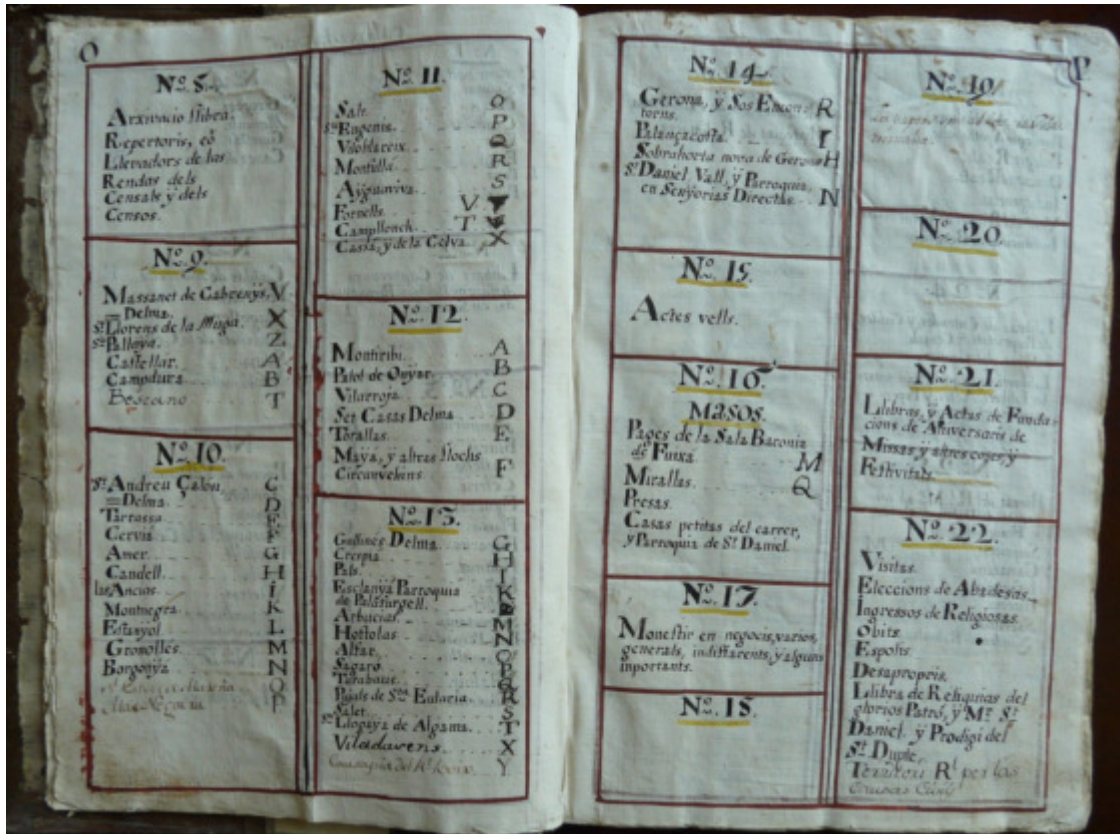 O
Nº. 8.
Arxivacio llibra.
Repertoris, eó
Llevadors de las
Rendas dels
Censals ÿ dels
Censos.
Nº. 9.
Massanet de Cabrenÿs. V
= Delma.
St. Llorens de la Muga. X
St. Pallaya. Z
Castellar. A
Campdura. B
Bescano T
Nº. 10.
St. Andreu Çalou C
= Delma. D
Tarrassa. E
Cerviá F
Amer. G
Caudell. H
las Ancias. I
Montnegra. K
Estanÿol L
Gronolles. M
Borgonÿá N
O
P
Nº. 11.
Salt. O
Sta. Eugenia. P
Viloblareix. Q
Montfullá. R
Aÿguaviva. S
Fornells. V
Campllonch. T
Cassá, y de la Celva. X
Nº. 12.
Montiribi A
Palol de Onÿar. B
Vilarroja. C
Set Casas Delma D
Torallas. E
Maÿá, y altras llochs
Circunvehins. F
Nº. 13.
Gallines Delma. G
Crespiá H
Pals. I
Esclanÿá Parroquia
de Palafurgell. K
Arbucias. M
Hostolas N
Alfar. O
Sagaró P
Tarabaus.
Pujals de Sta. Eularia. R
Salet. S
St. Llogaÿa de Algama. T
Viladavens. X
Y
P
Nº. 14
Gerona, ÿ Sos Encon-
torns. R
Palançacosta I
Sobrahorta nova de Gerona H
St. Daniel Vall, ÿ Parroquia,
en Senÿorias Directas. N
Nº. 15.
Actes vells.
Nº. 16.
Masos.
Pages de la Sala Baronia
de Fuixá M
Mirallas. Q
Presas.
Casas petitas del carrer,
y Parroquia de St. Daniel.
Nº. 17.
Monestir en negocis, varios,
generals, indiffarents, ÿ alguns
inportants.
Nº. 18.
Nº. 19.
Nº. 20.
Nº. 21.
Llibras, ÿ Actas de Funda-
cions de Aniversaris de
Missas ÿ altres cojes, ÿ
Festivitats.
Nº. 22.
Visitas.
Eleccions de Abadesas.
Ingressos de Religiosas.
Obits.
Espolis.
Desapropris.
Llibra de Reliquias del
glorios Patró, ÿ Mr. St.
Daniel. ÿ Prodigi del
St. Duple,
Rl. per las